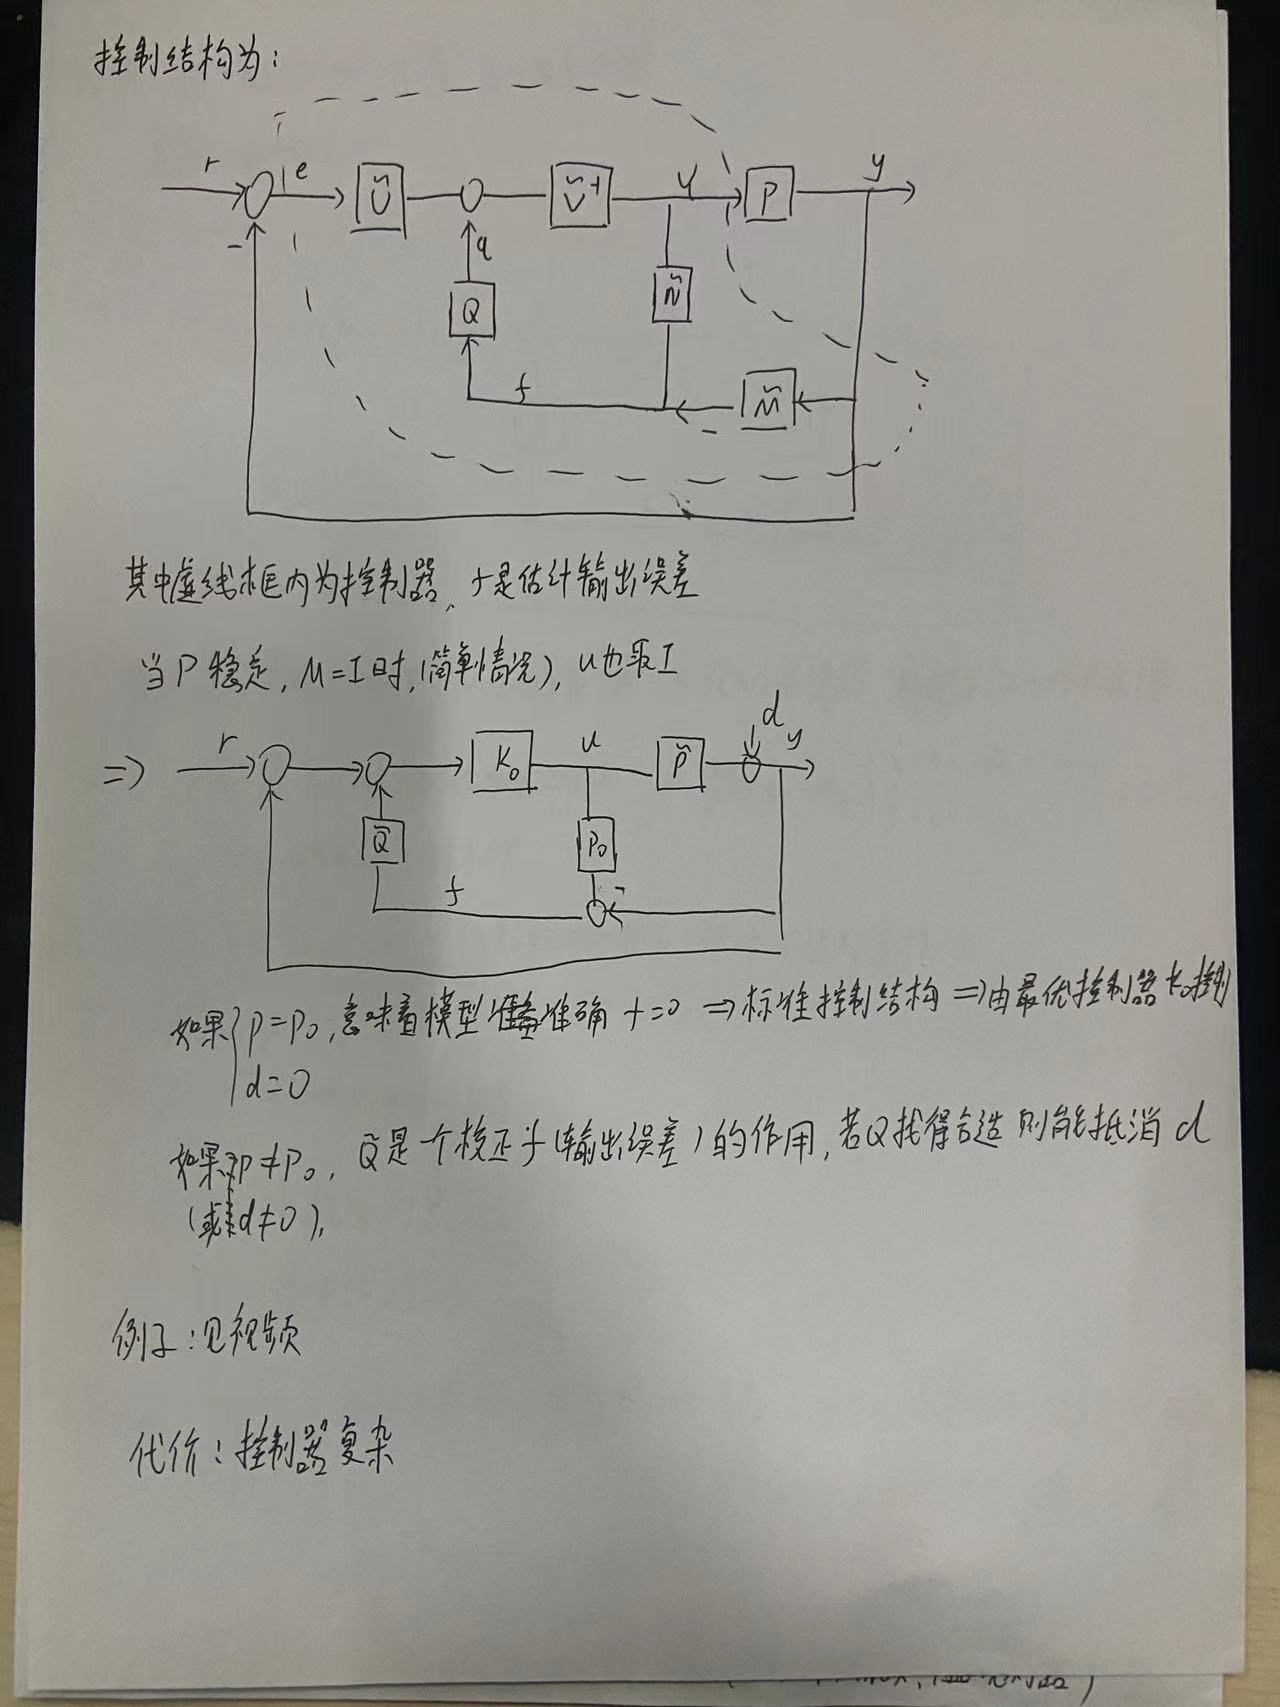 控制结构为:
r e Ũ Ṽ⁻¹ u P y
- q
Q Ñ
f M̃
-
其中虚线框内为控制器, f是估计输出误差
当P稳定, M=I时,(简单情况), u也取I
d
⇒ r K₀ u P̃ y
Q̃ P₀
f -
如果{P=P₀,意味着模型准确 f=0 ⇒标准控制结构⇒由最优控制器K₀控制
d=0
如果P≠P₀, Q̃是个校正f(输出误差)的作用,若Q找得合适则能抵消d
(或d≠0),
例子:见视频
代价:控制器复杂